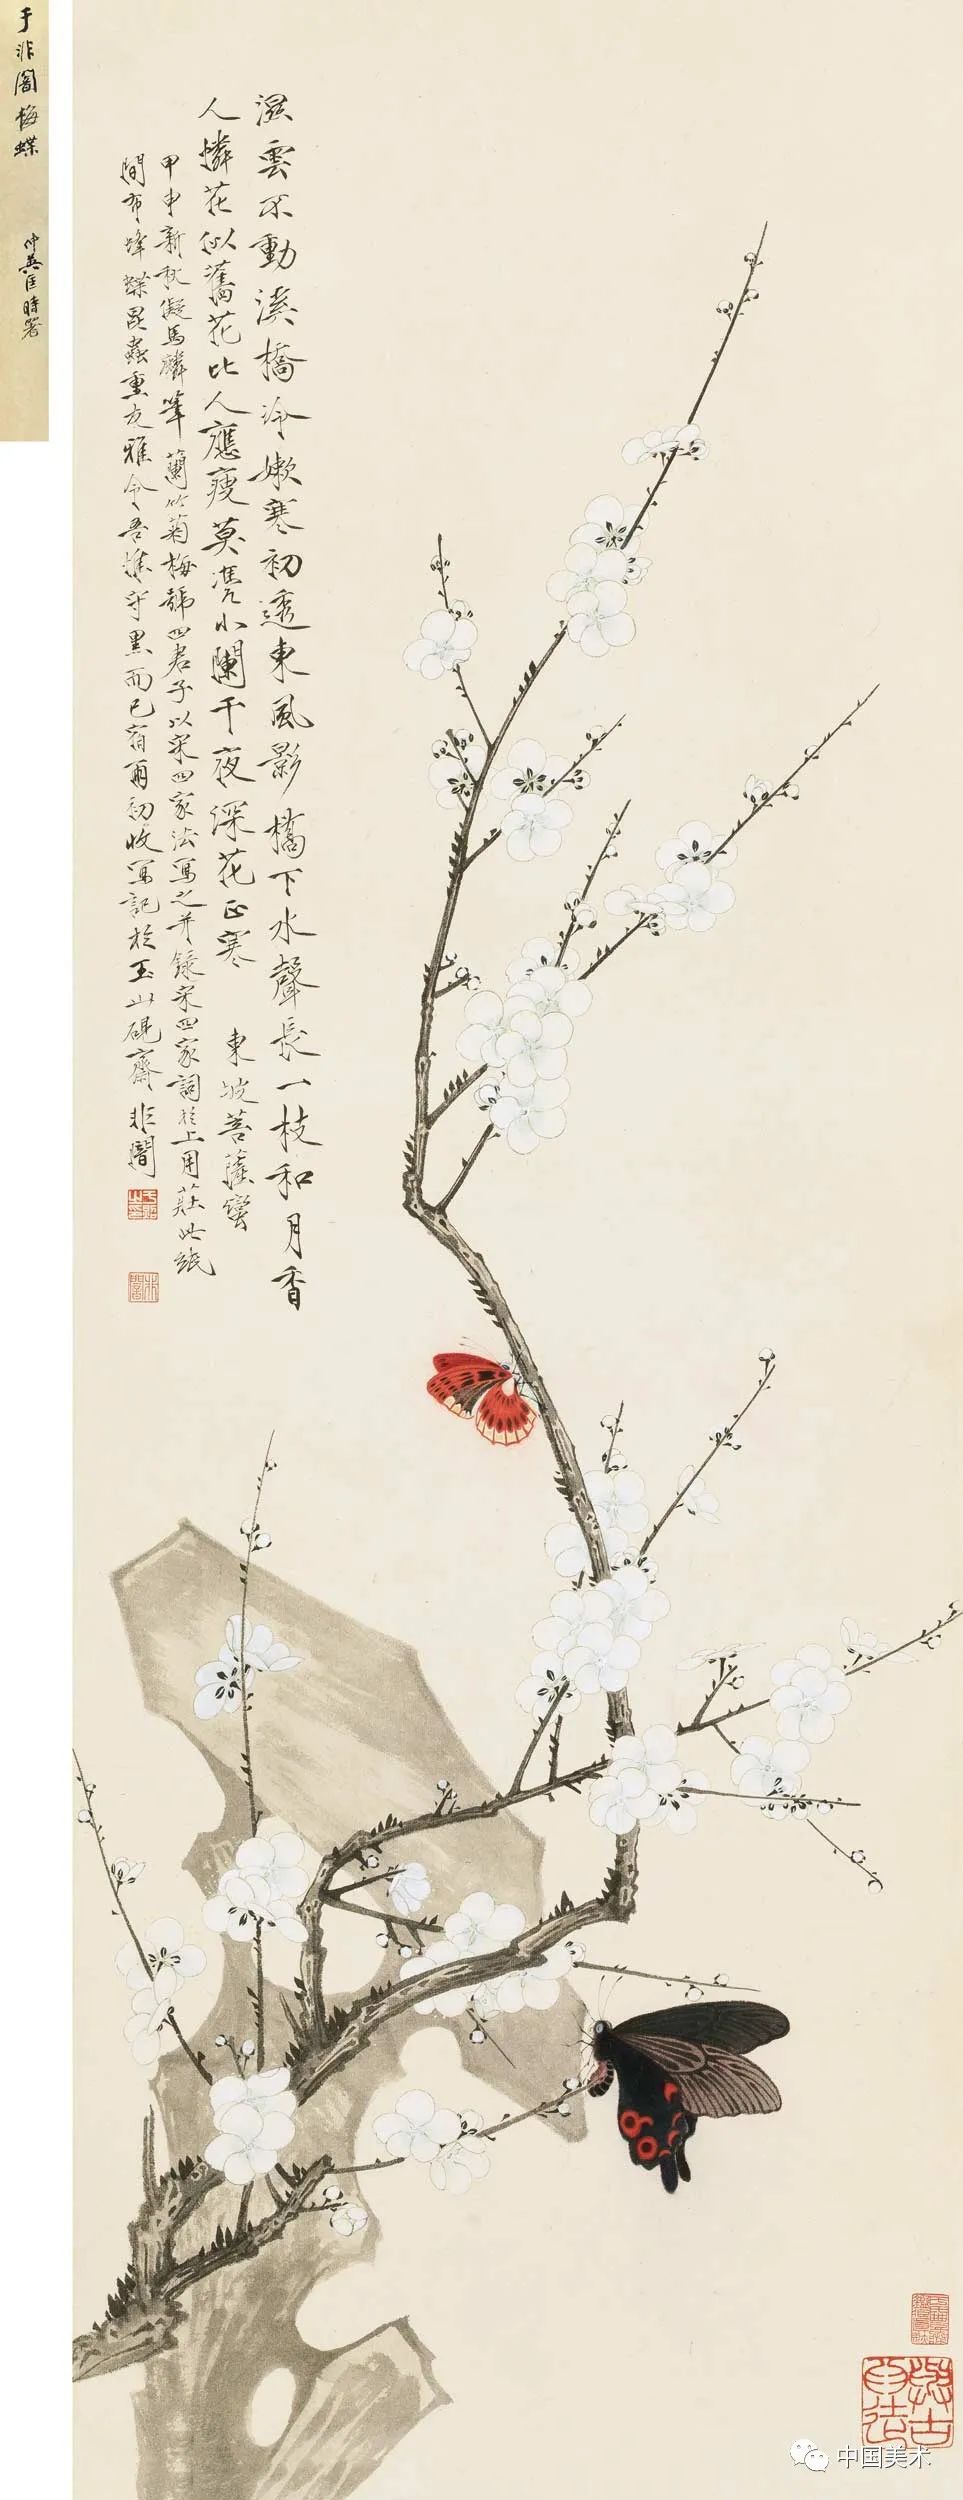 濕雲不動溪橋冷嫩寒初透東風影橋下水聲長一枝和月香
人憐花似舊花比人應瘦莫凴小闌干夜深花正寒 東坡菩薩蠻
甲申新秋儗馬麟筆蘭竹菊梅號四君子以宋四家法寫之并錄宋四家詞於上用莊此紙
間布蜂蝶昆蟲重友雅令吾惟守黑而已宿雨初收寫記於玉山硯齋非闇
于非闇梅蝶
仲英匡時署
中国美术